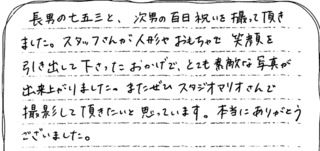 長男の七五三と、次男の百日祝いを撮って頂き
ました。スタッフさんが人形やおもちゃで笑顔を
引き出して下さったおかげで、とても素敵な写真が
出来上がりました。またぜひスタジオマリオさんで
撮影して頂きたいと思っています。本当にありがとう
ございました。